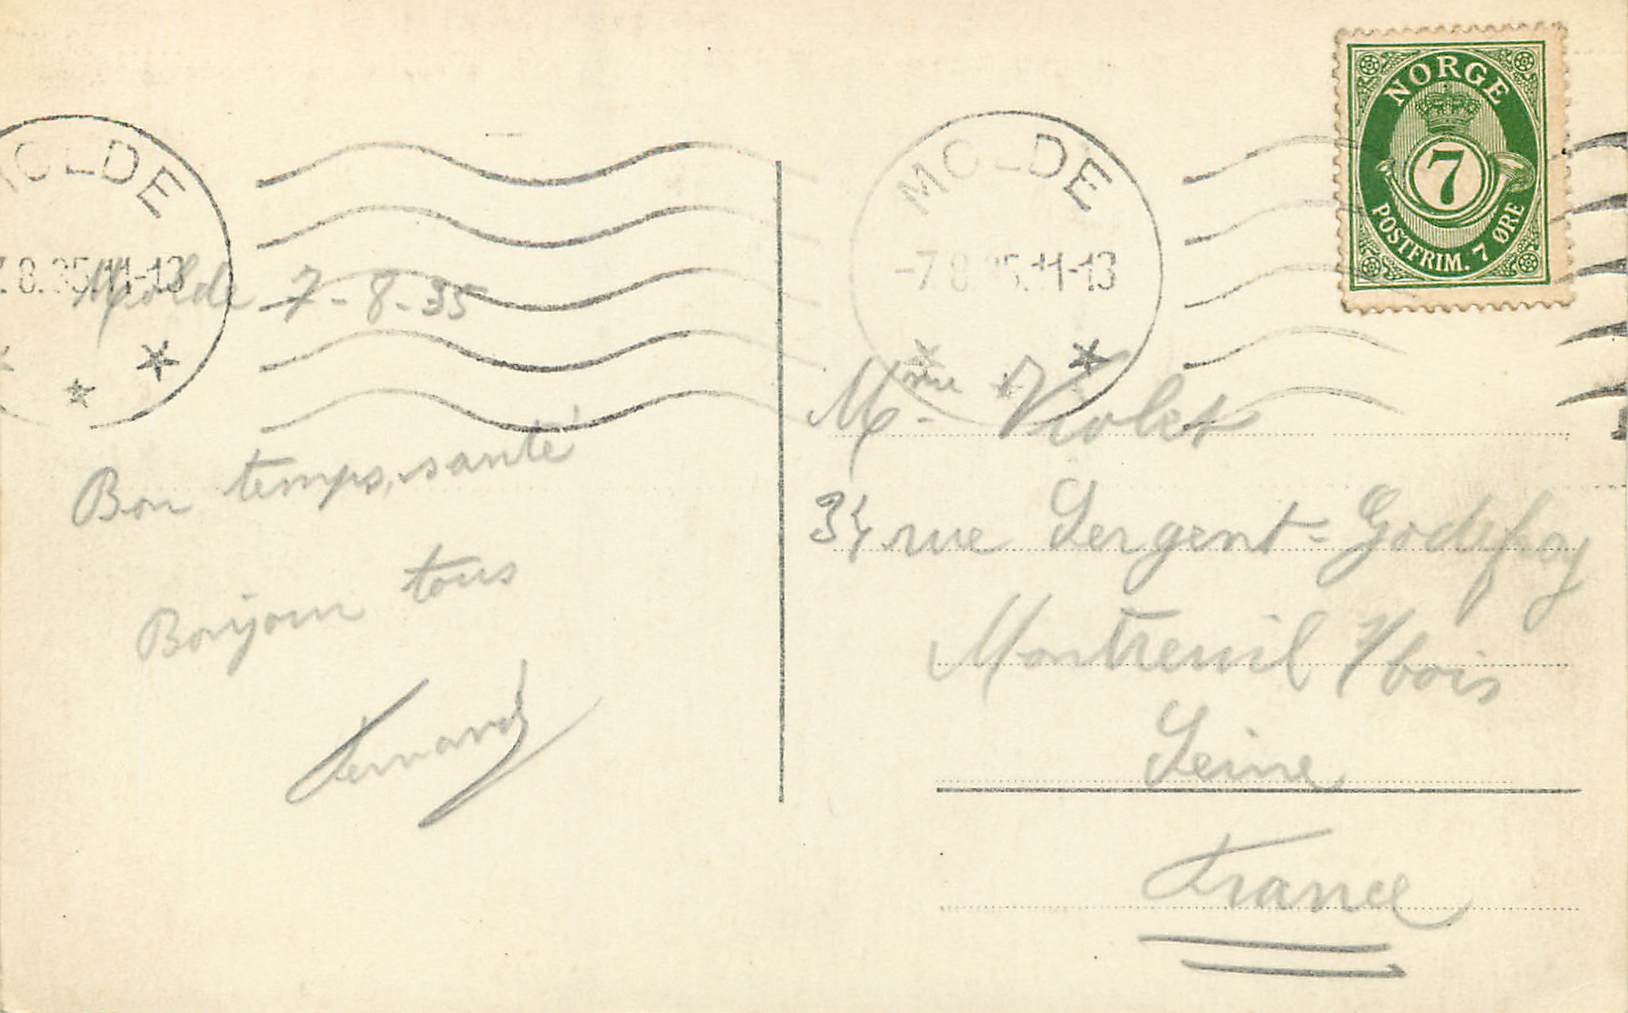 MOLDE
7.8.35.11-13
MOLDE
-7.8.35.11-13
NORGE
7
POSTFRIM. 7 ØRE
Molde 7-8-35
Bon temps, santé
Bonjour tous
Fernand
Mme Violet
34 rue Sergent-Godefroy
Montreuil s/bois
Seine
France